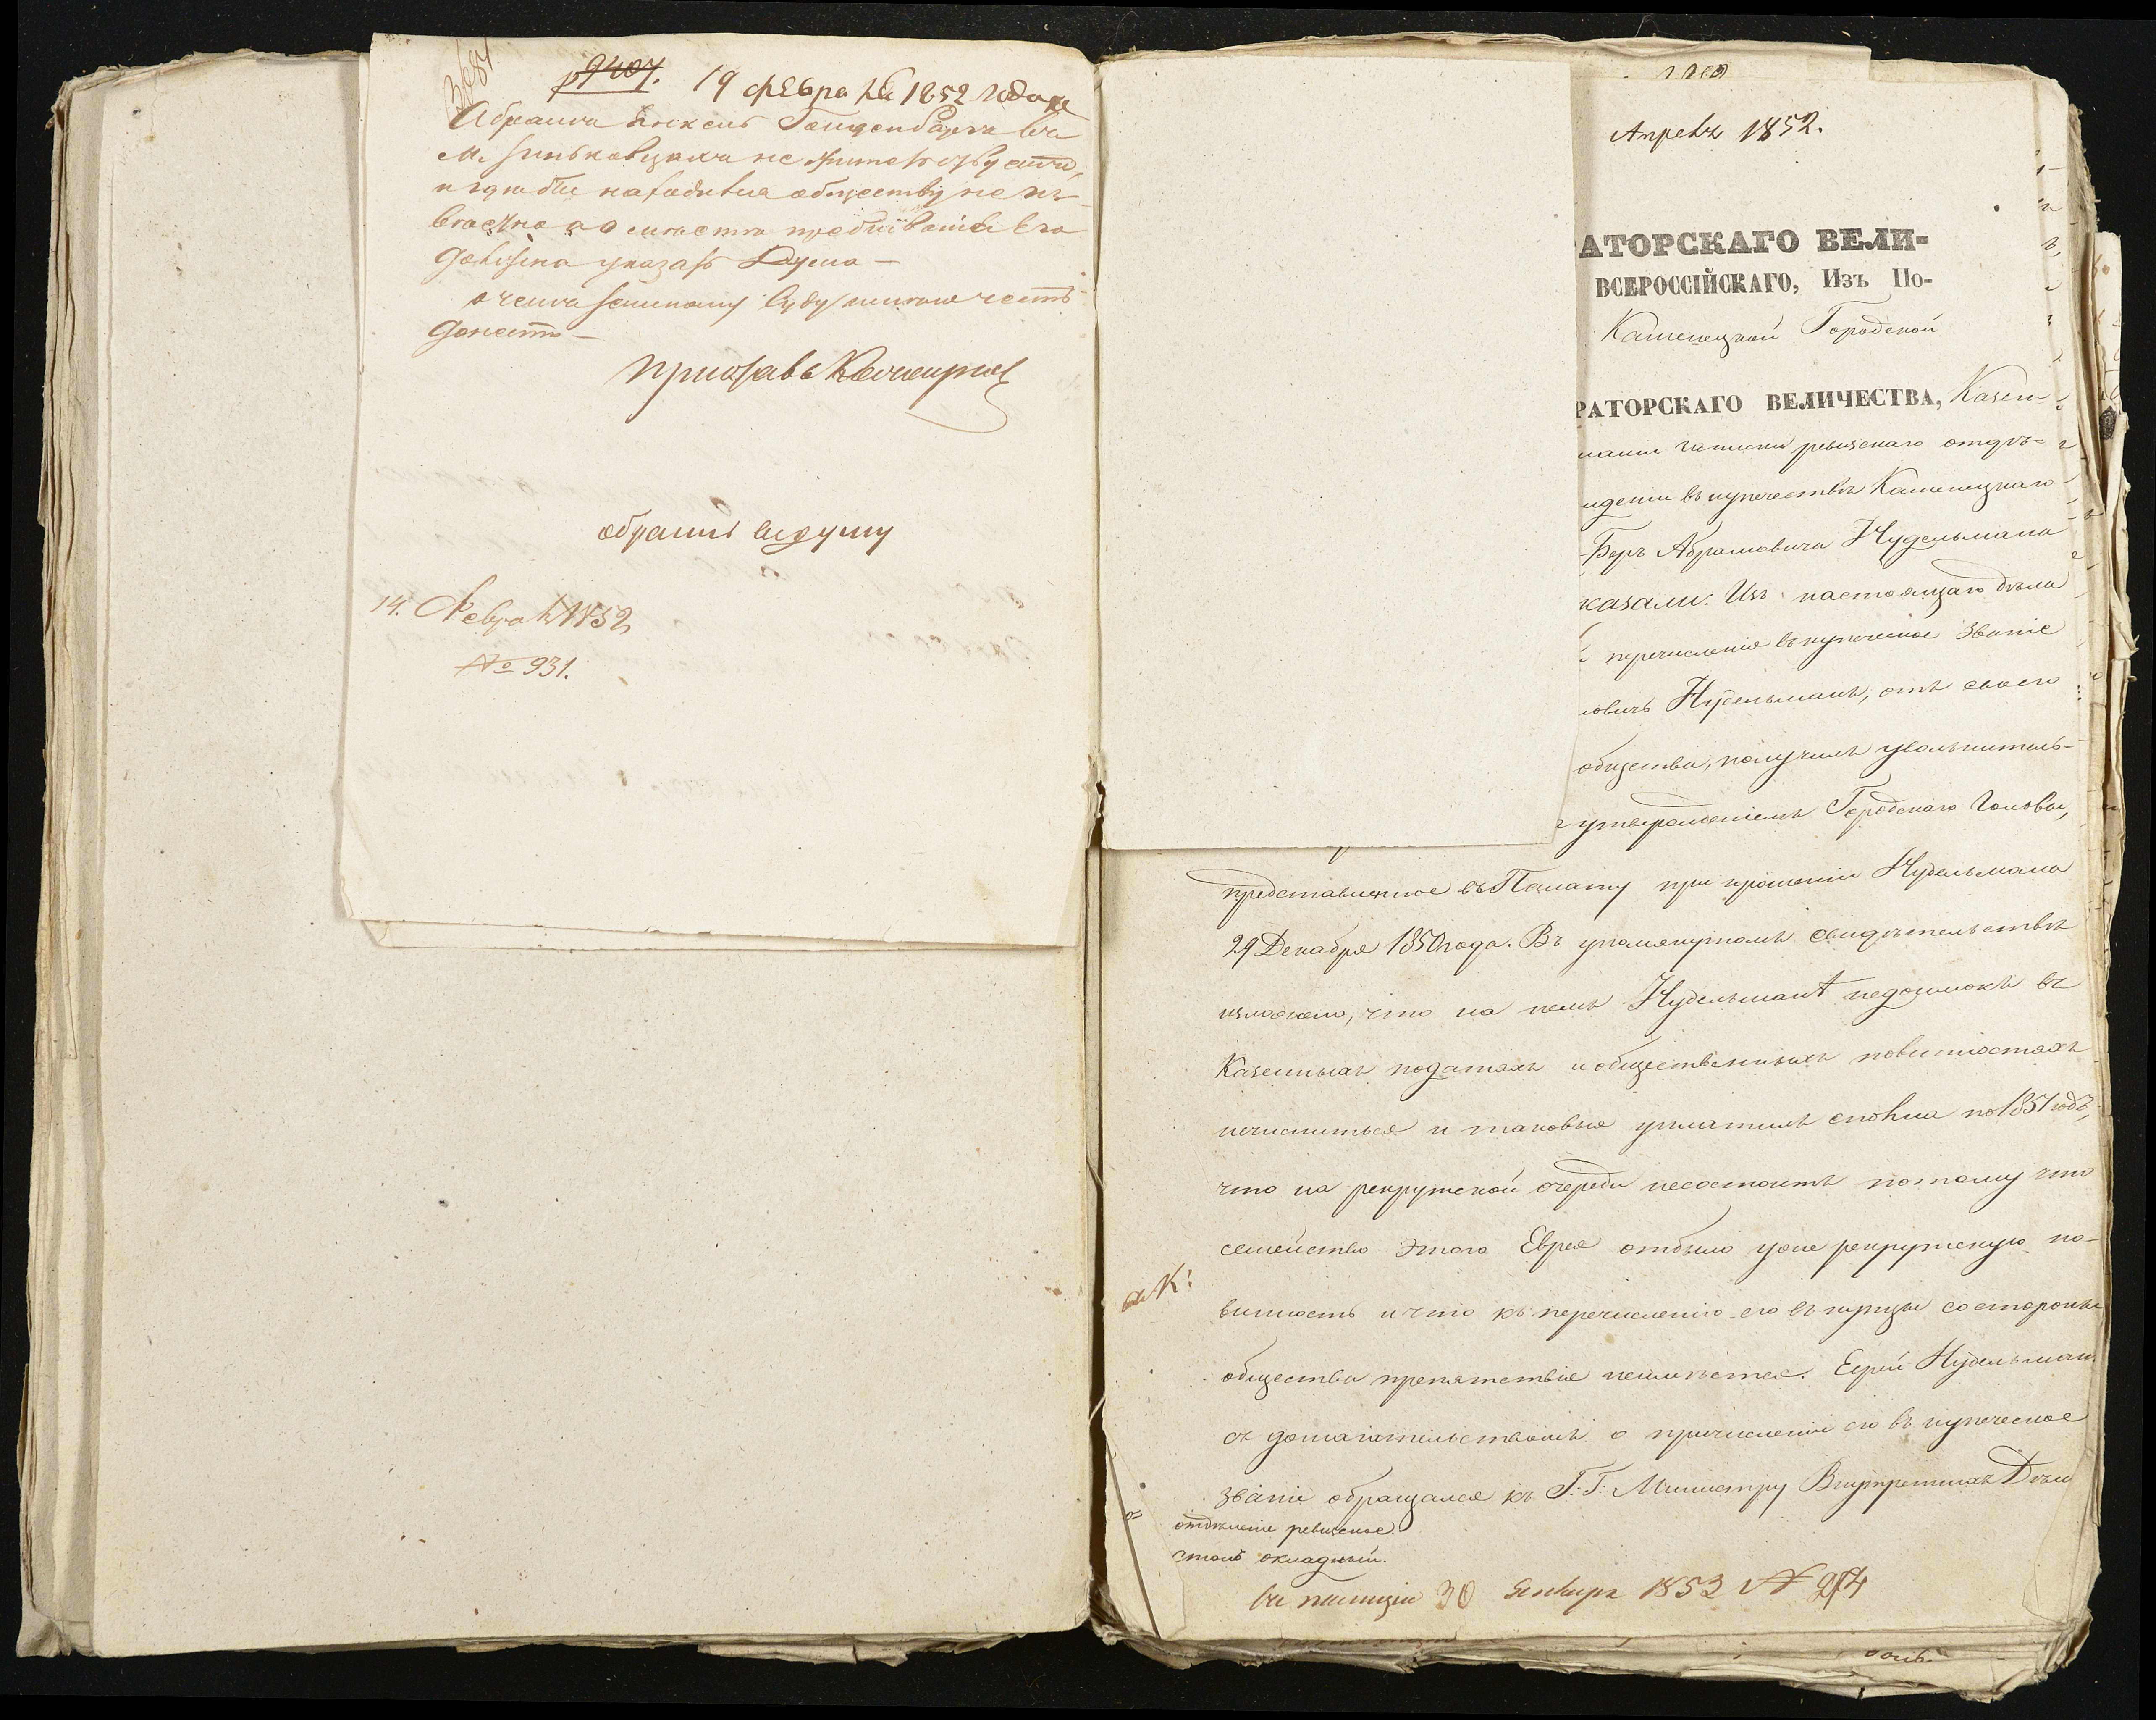 19 февраля 1852 года
Абрамъ въ
м. не жительствуетъ,
и где бы находился обществу неиз-
вестно а о места пребывания его
должна указать Дума —
о чемъ земскому суду имею честь
донести —
Приставъ
обратить въ думу
14. Февраля 1852
№ 931.
Апреля 1852.
РАТОРСКАГО ВЕЛИ-
ВСЕРОССІЙСКАГО, Изъ По-
Каменецкой Городской
РАТОРСКАГО ВЕЛИЧЕСТВА, Казен-
ревизскаго отдѣ-
въ купечествѣ Каменецкаго
Беръ Абрамовича Нудельмана
казали: Изъ настоящаго дѣла
перечисленіе въ купеческое званіе
овичъ Нудельманъ, отъ своего
общества, получилъ увольнитель-
утвержденіемъ Городскаго Головы,
представленное въ Палату при прошеніи Нудельмана
29 Декабря 1850 года. Въ упомянутомъ свидѣтельствѣ
изложено, что на немъ Нудельманѣ недоимокъ въ
Казенныхъ податяхъ и общественныхъ повинностяхъ
нечислиться и таковые уплатилъ сполна по 1851 годъ,
что на рекрутской очереди несостоитъ потому что
семейство этого Еврея отбыло уже рекрутскую по-
винность и что къ перечисленію его въ купцы со стороны
общества препятствія неимѣется. Еврей Нудельманъ
съ домагательствомъ о причисленіи его въ купеческое
званіе обращался къ Г. Г. Министру Внутреннихъ Дѣлъ
отдѣленіе ревизское.
столъ окладный.
въ полиціи 30 Генваря 1853 №